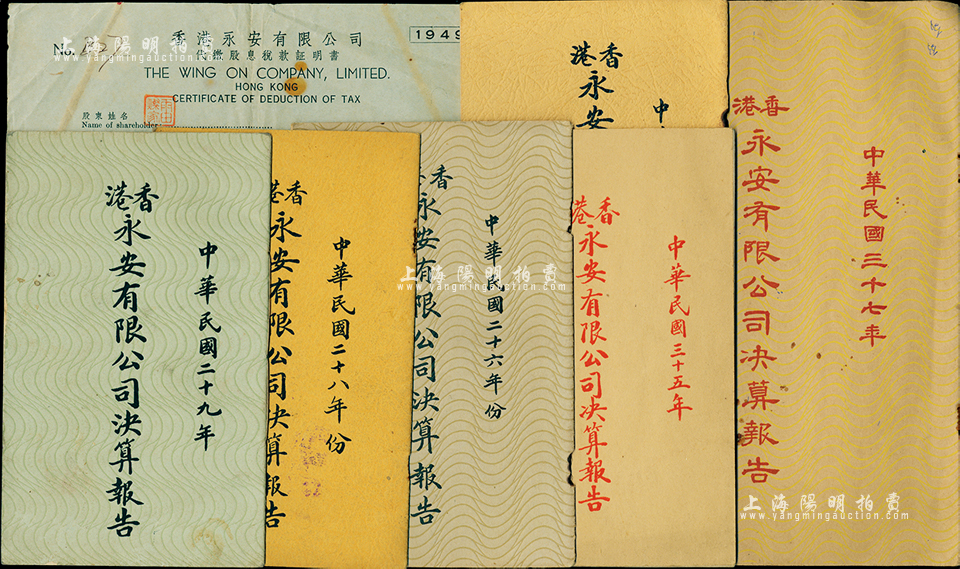 No.
香港永安有限公司
代繳股息稅款証明書
THE WING ON COMPANY, LIMITED.
HONG KONG
CERTIFICATE OF DEDUCTION OF TAX
股東姓名
Name of shareholder
1949
香港
永安
中
香港
永安有限公司決算報告
中華民國三十七年
香港
永安有限公司決算報告
中華民國二十九年
香港
永安有限公司決算報告
中華民國二十八年份
香
永安有限公司決算報告
中華民國二十六年份
香港
永安有限公司決算報告
中華民國三十五年
上海陽明拍賣
www.yangmingauction.com
上海陽明拍賣
www.yangmingauction.com
上海陽明拍賣
www.yangmingauction.com